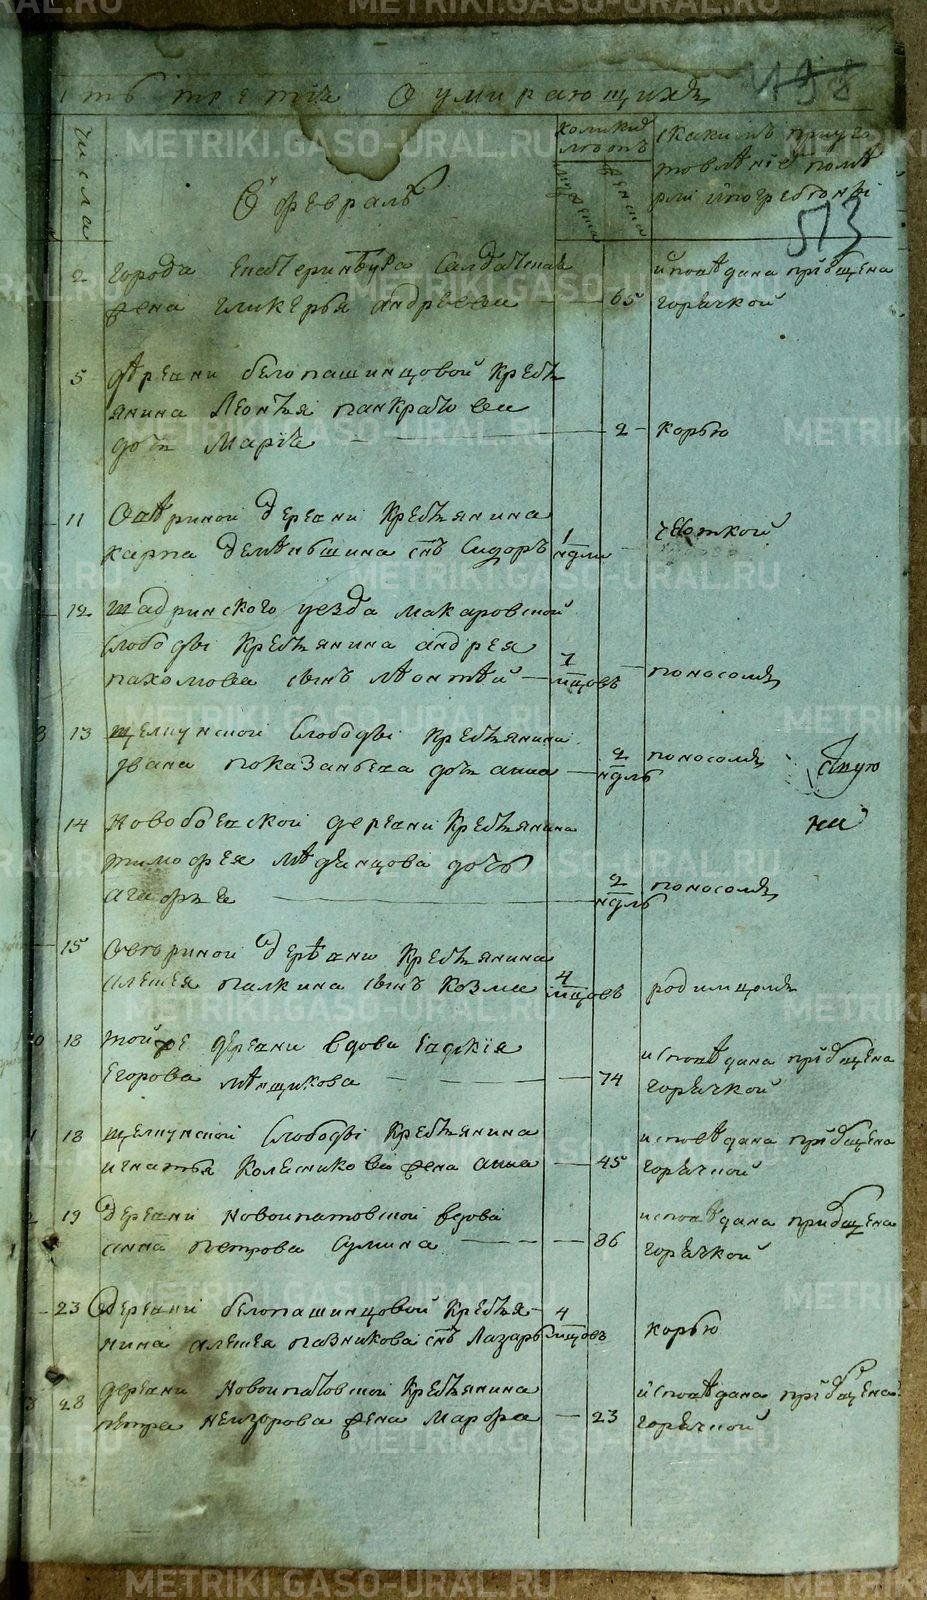 сть третiя О умирающихъ
498
числа
коликихъ лѣтъ
мужеска
женска
и какимъ приуго
товлѣнiемъ помѣ
рли и погребены
513
О февраль
2 города Екатеринбурга Салдатская
жена гликерья андреева 65 исповѣдана прiобщена
горячкой
5 дѣревни белопашинцовой Кресть
янина Леонтья панкратьева
дочь Марiя 2 корью
11 деревни Крестьянина
карпа сiнъ Сидоръ 1 ндли чехоткой
12 шадринского уезда макаровской
слободы Крестьянина андрея
пахомова сынъ лѣонтѣй мцовъ поносомъ
13 щелкунской Слободы Крестьянина
Iвана дочь анна 2 ндль поносомъ
14 деревни Крестьянина
тимофея дочь
2 ндль поносомъ
15 дерѣвни Крестьянина
алексея палкина сынъ козма 4 мцовъ родимцомъ
18 тойже деревни вдова Евдокiя
Егорова 74 исповѣдана прiобщена
горячкой
18 щелкунской Слободы Крестьянина
игнатья Колесникова жена анна 45 исповѣдана прiобщена
горячкой
19 Деревни новоипатовской вдова
анна петрова Сумина 86 исповѣдана приобщена
горячкой
23 Деревни белопашинцовой Крестья
нина алексея пазникова сiнъ Лазарь 4 мцовъ корью
28 деревни Новоипатовской Крестьянина
петра жена Марфа 23 исповѣдана прiобщена
горячкой
METRIKI.GASO-URAL.RU